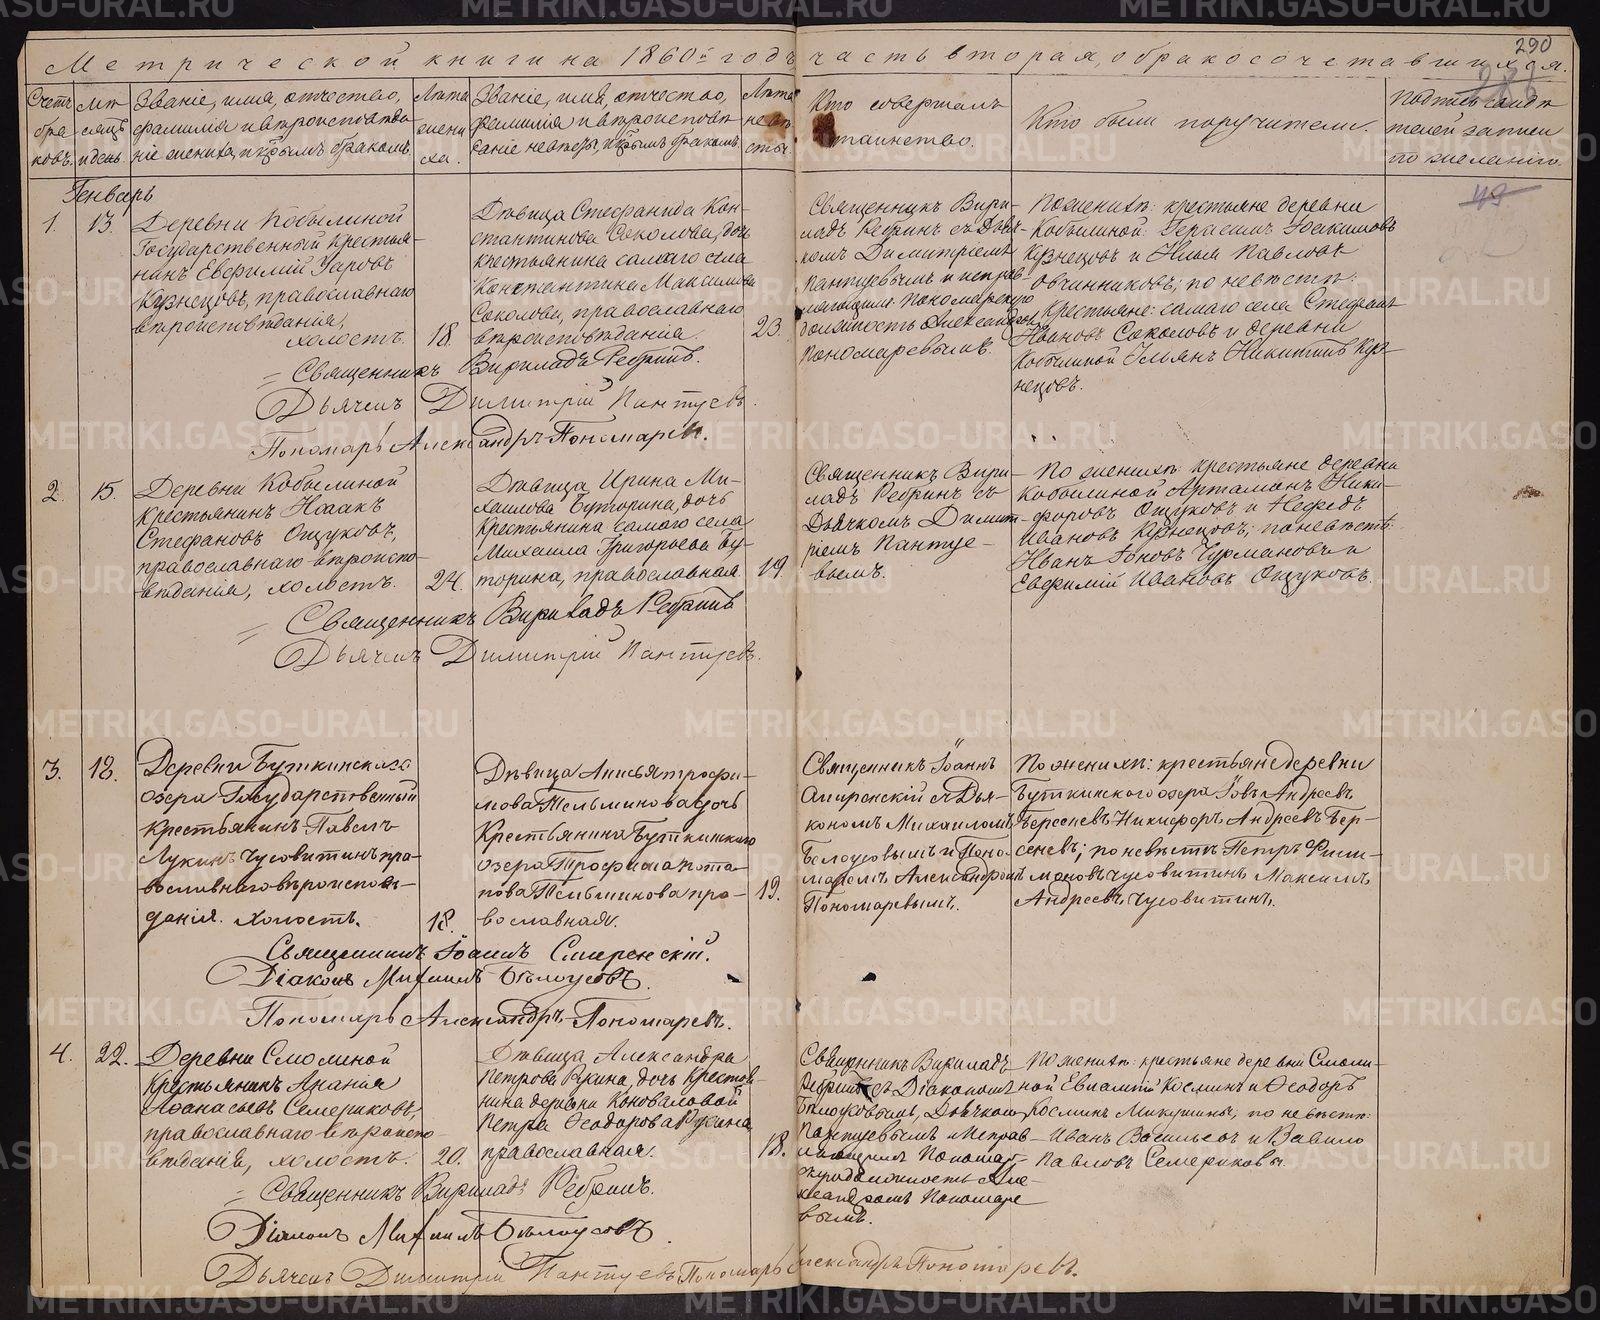 290
Метрической книги на 1860й годъ часть вторая, о бракосочетавшихся.
Счетъ браковъ.
Мѣсяцъ и день.
Званіе, имя, отчество,
фамилія и вѣроисповѣда-
ніе жениха, и которымъ бракомъ.
Лѣта
жени
ха.
Званіе, имя, отчество,
фамилія и вѣроисповѣ
даніе невѣсты, и которымъ бракомъ.
Лѣта
невѣ
сты.
Кто совершалъ
таинство.
Кто были поручители.
Подпись свидѣ
телей записи
по желанію.
Генварь
1.
13.
Деревни Кобылиной
Государственный Крестья-
нинъ Евфимій Уаровъ
Кузнецовъ, православнаго
вѣроисповѣданія,
холостъ.
18.
Дѣвица Стефанида Кон-
стантинова Соколова, дочь
крестьянина самаго села
Константина Максимова
Соколова, православнаго
вѣроисповѣданія.
23.
Священникъ Вири-
ладъ Ребринъ съ Дья-
комъ Димитріемъ
Пантуевымъ и исправ-
ляющимъ Пономарскую
должность Александромъ
Пономаревымъ.
По женихѣ: крестьяне деревни
Кобылиной: Герасимъ Іоакимовъ
Кузнецовъ и Илья Павловъ
Овчинниковъ; по невѣстѣ:
Крестьяне: самаго села Стефанъ
Ивановъ Соколовъ и деревни
Кобылиной Ульянъ Никитинъ Куз-
нецовъ.
Священникъ Вириладъ Ребринъ.
Дьячекъ Димитрій Пантуевъ.
Пономарь Александръ Пономаревъ.
2.
15.
Деревни Кобылиной
Крестьянинъ Исаакъ
Стефановъ Ощуковъ,
православнаго вѣроиспо-
вѣданія, холостъ.
24.
Дѣвица Ирина Ми-
хаилова Буторина, дочь
крестьянина самаго села
Михаила Григорьева Бу-
торина, православная.
19.
Священникъ Вири-
ладъ Ребринъ съ
Дьячкомъ Димит-
ріемъ Пантуе-
вымъ.
По женихѣ: крестьяне деревни
Кобылиной Артамонъ Ники-
форовъ Ощуковъ и Нефедъ
Ивановъ Кузнецовъ; по невѣстѣ:
Иванъ Іоновъ Чурмановъ и
Евфимій Ивановъ Ощуковъ.
Священникъ Вириладъ Ребринъ
Дьячекъ Димитрій Пантуевъ.
3.
18.
Деревни Буткинскаго
озера Государственный
Крестьянинъ Павелъ
Лукинъ Чусовитинъ пра-
вославнаго вѣроисповѣ-
данія. холостъ.
18.
Дѣвица Анисья Трофи-
мова Мельникова дочь
Крестьянина Буткинскаго
озера Трофима Пота-
пова Мельникова пра-
вославная.
19.
Священникъ Іоаннъ
Смиренскій съ Дья-
кономъ Михаиломъ
Белоусовымъ и Поно-
маремъ Александромъ
Пономаревымъ.
По женихѣ: крестьяне деревни
Буткинскаго озера Іовъ Андреевъ
Берсеневъ Никифоръ Андреевъ Бер-
сеневъ; по невѣстѣ Петръ Фили-
моновъ Чусовитинъ Максимъ
Андреевъ Чусовитинъ.
Священникъ Іоаннъ Смиренскій.
Діаконъ Михаилъ Бѣлоусовъ.
Пономарь Александръ Пономаревъ.
4.
22.
Деревни Смолиной
Крестьянинъ Ананія
Аѳанасьевъ Семериковъ,
православнаго вѣроиспо-
вѣданія, холостъ.
20.
Дѣвица Александра
Петрова Рукина, дочь Крестья-
нина деревни Коноваловой
Петра Ѳеодорова Рукина
православная.
18.
Священникъ Вириладъ
Ребринъ съ Діакономъ
Бѣлоусовымъ, Дьячкомъ
Пантуевымъ и Исправ-
ляющимъ Пономар-
скую должность Але-
ксандромъ Пономаре
вымъ.
По женихѣ: крестьяне деревни Смоли-
ной Евлампій Косминъ и Ѳеодоръ
Косминъ Микушины, по невѣстѣ:
Иванъ Васильевъ и Вавило
Павловъ Семериковы.
Священникъ Вириладъ Ребринъ.
Діаконъ Михаилъ Бѣлоусовъ.
Дьячекъ Димитрій Пантуевъ Пономарь Александръ Пономаревъ.
METRIKI.GASO-URAL.RU